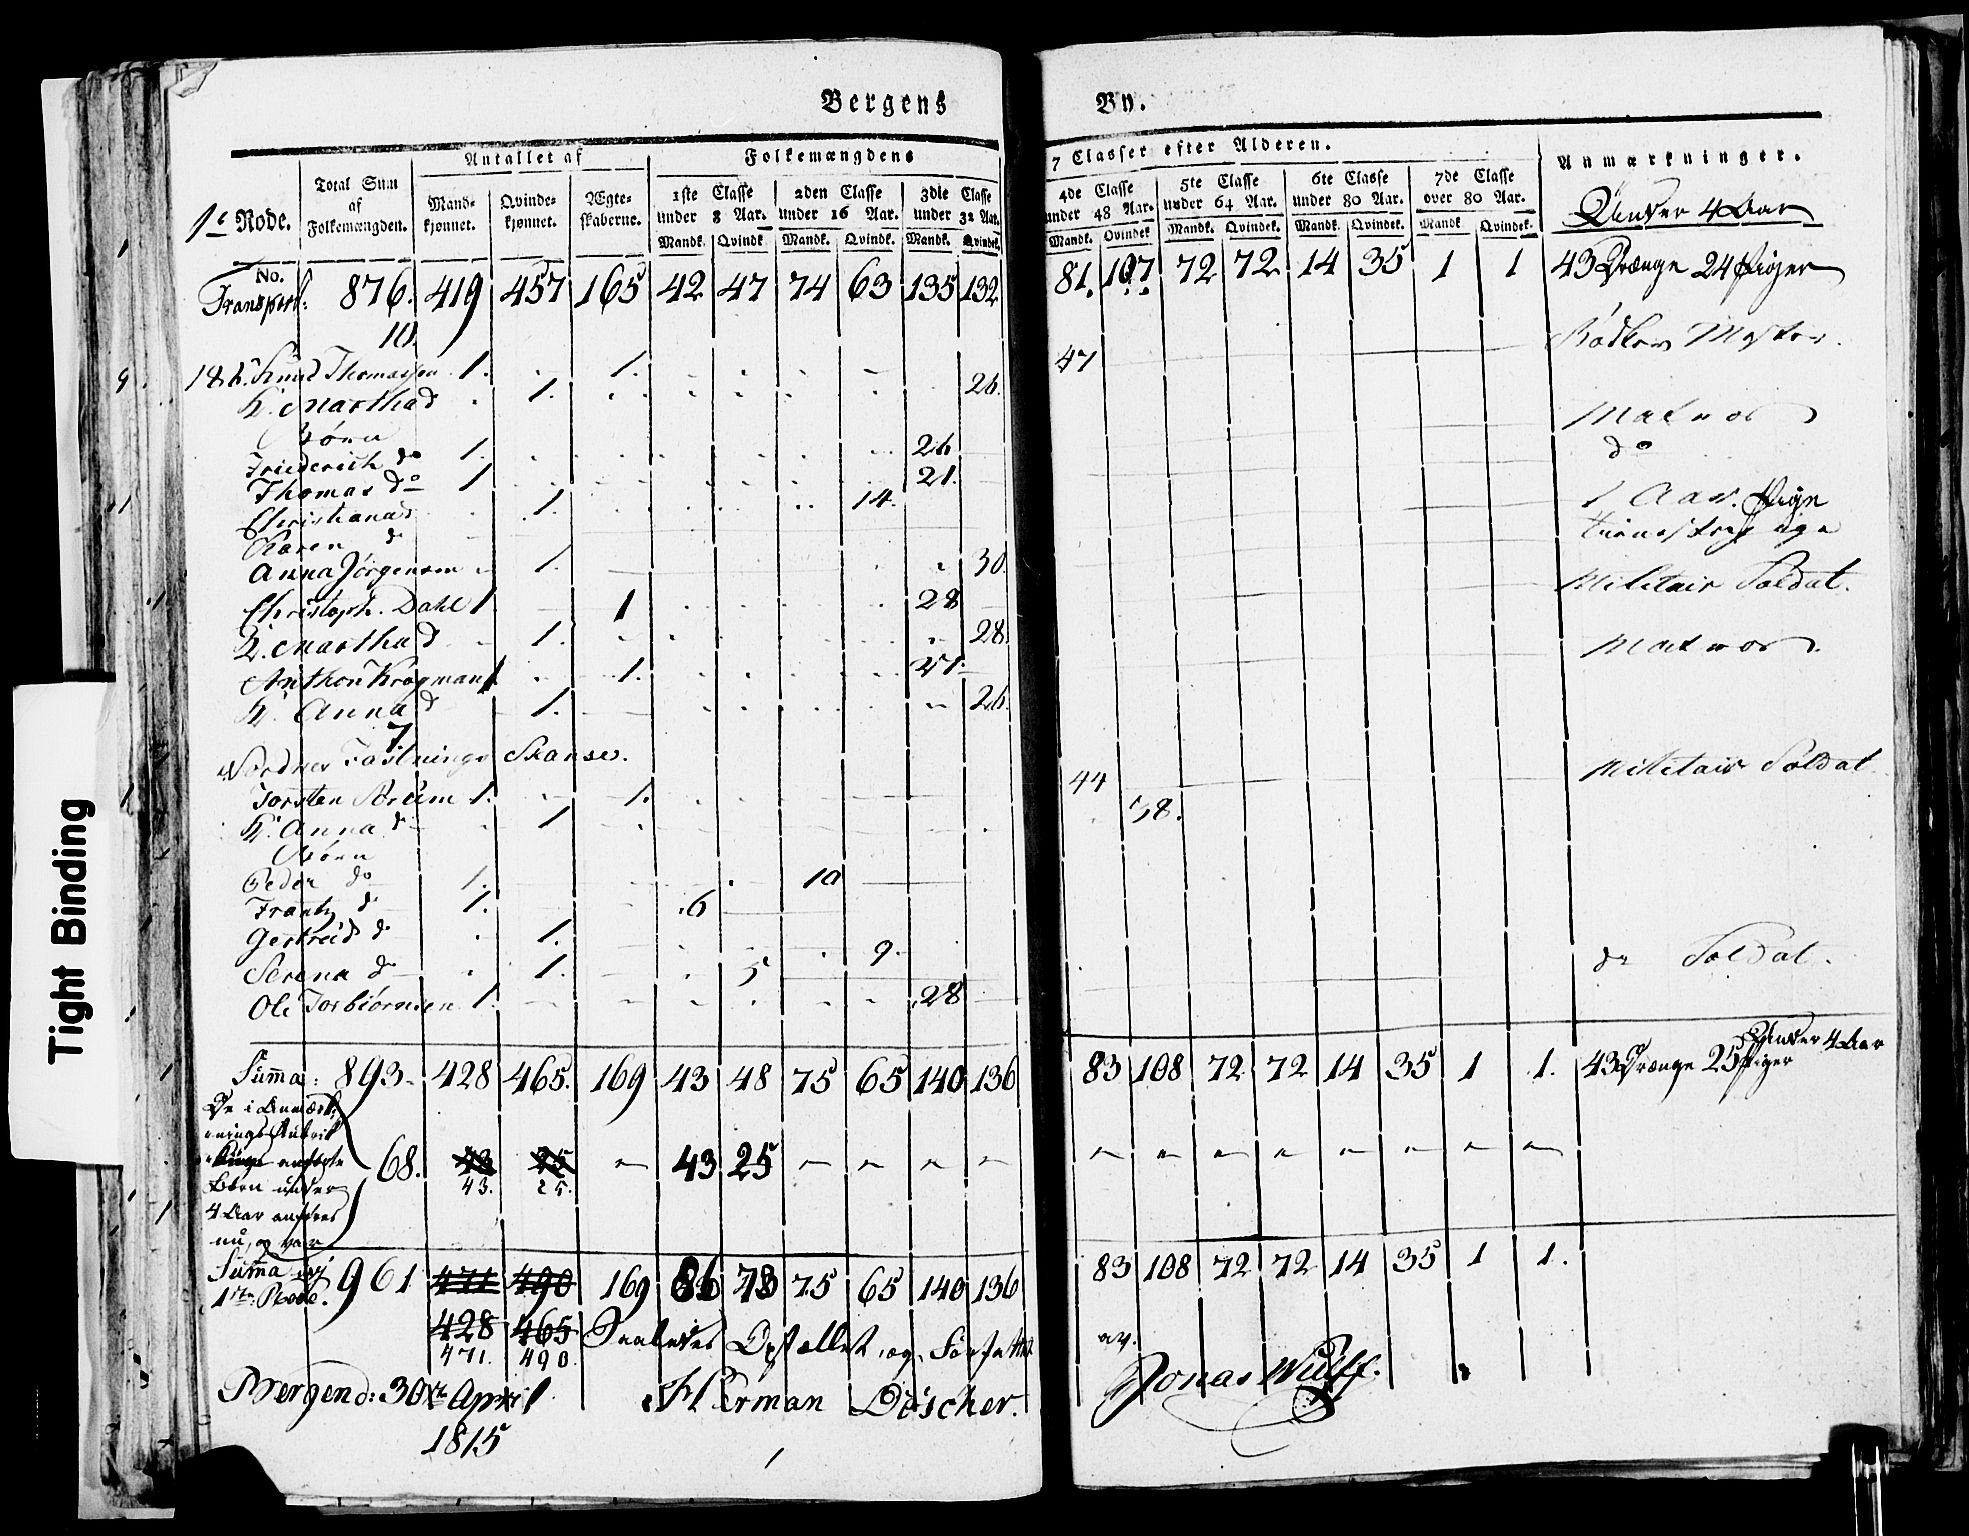 Bergens By.
Antallet af Folkemængdens 7 Classer efter Alderen. Anmærkninger.
1e Rode. Total Sum af Folkemængden. Mand-kjønnet. Qvinde-kjønnet. Ægte-skaberne. 1ste Classe under 8 Aar. 2den Classe under 16 Aar. 3die Classe under 32 Aar. 4de Classe under 48 Aar. 5te Classe under 64 Aar. 6te Classe under 80 Aar. 7de Classe over 80 Aar. Under 4 Aar
No. Mandk. Qvindk. Mandk. Qvindk. Mandk. Qvindek. Mandk. Qvindek. Mandk. Qvindek. Mandk. Qvindek. Mandk. Qvindek.
Transport: 876. 419 457 165 42 47 74 63 135 132 81. 107 72 72 14 35 1 1 43 Drænge 24 Piger
10
Knud Thomassen 1. 1. 47 Bødker Mester.
K. Martha d 1. 26.
Børn
Friederich do 1. 26 Matros
Thomas do 1 21. do
Christiana d 1. 14.
Karen d 1 Aar. Pige
Anna Jörgensen 1. 30.
Christoph. Dahl 1 1 28 Militair Soldat.
K. Martha d 1. 28.
Anthon Krogman 1 1. 27. Matros.
K. Anna d 1. 26.
7
Nordnes Fæstnings Skanse.
Torsten 1. 1. 44 Militair Soldat
K. Anna d 1 38.
Børn
Peder do 1. 10
Frantz d 1. 6
Gertreid d 1. 9.
Serena d 1. 5
Ole Torbiörnsen 1. 28 do Soldat.
Summa: 893. 428 465. 169 43 48 75 65 140 136 83 108 72 72 14 35 1 1. 43 Drænge 25 Piger Under 4 Aar
De i Anmærk-
nings Rubrik
anførte
Børn under
4 Aar anføres
nu, og var
68. 43 25 43 25
43. 25.
Summa af 1ste Rode. 961 471 490 169 86 73 75 65 140 136 83 108 72 72 14 35 1 1.
428 465 Saaledes Optællet, og Forfattet av.
471. 490.
Bergen d: 30te April Herman Döscher. Jonas Wulff.
1815
Tight Binding